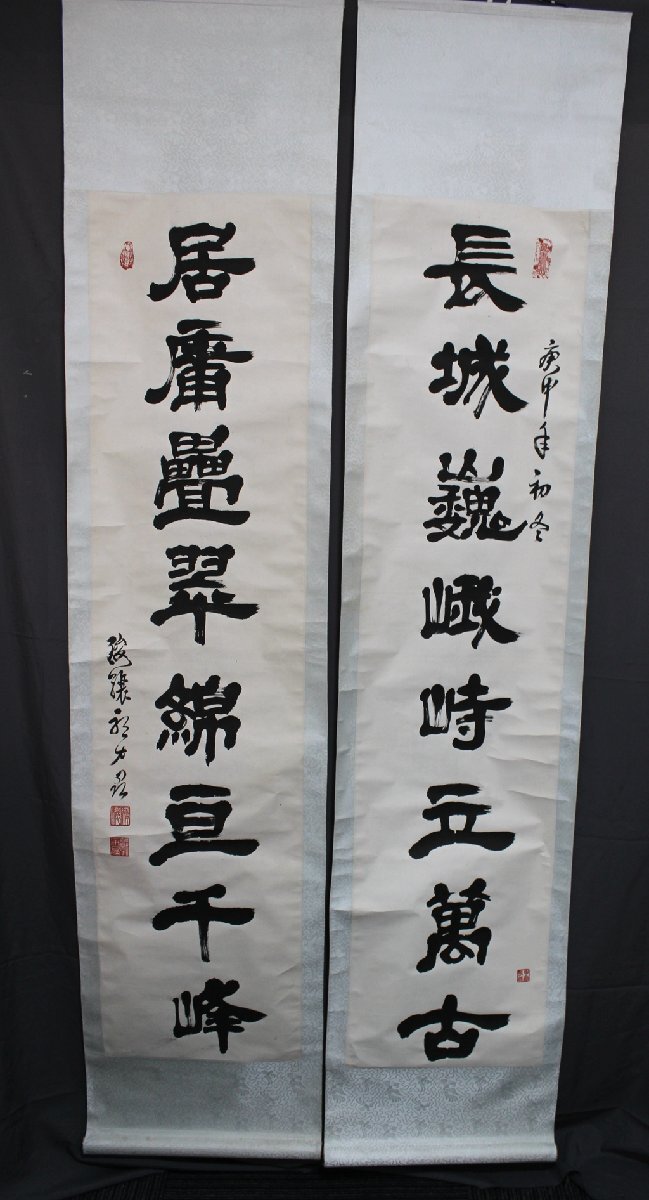 長城巍峨峙立萬古
庚申年初冬
居庸疊翠綿亘千峰